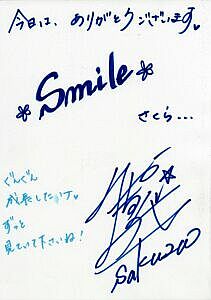 今日は、ありがとうございます。
*Smile*
さくら...
ぐんぐん
成長したいナ。
ずっと
見ていて下さいね!
Sakura